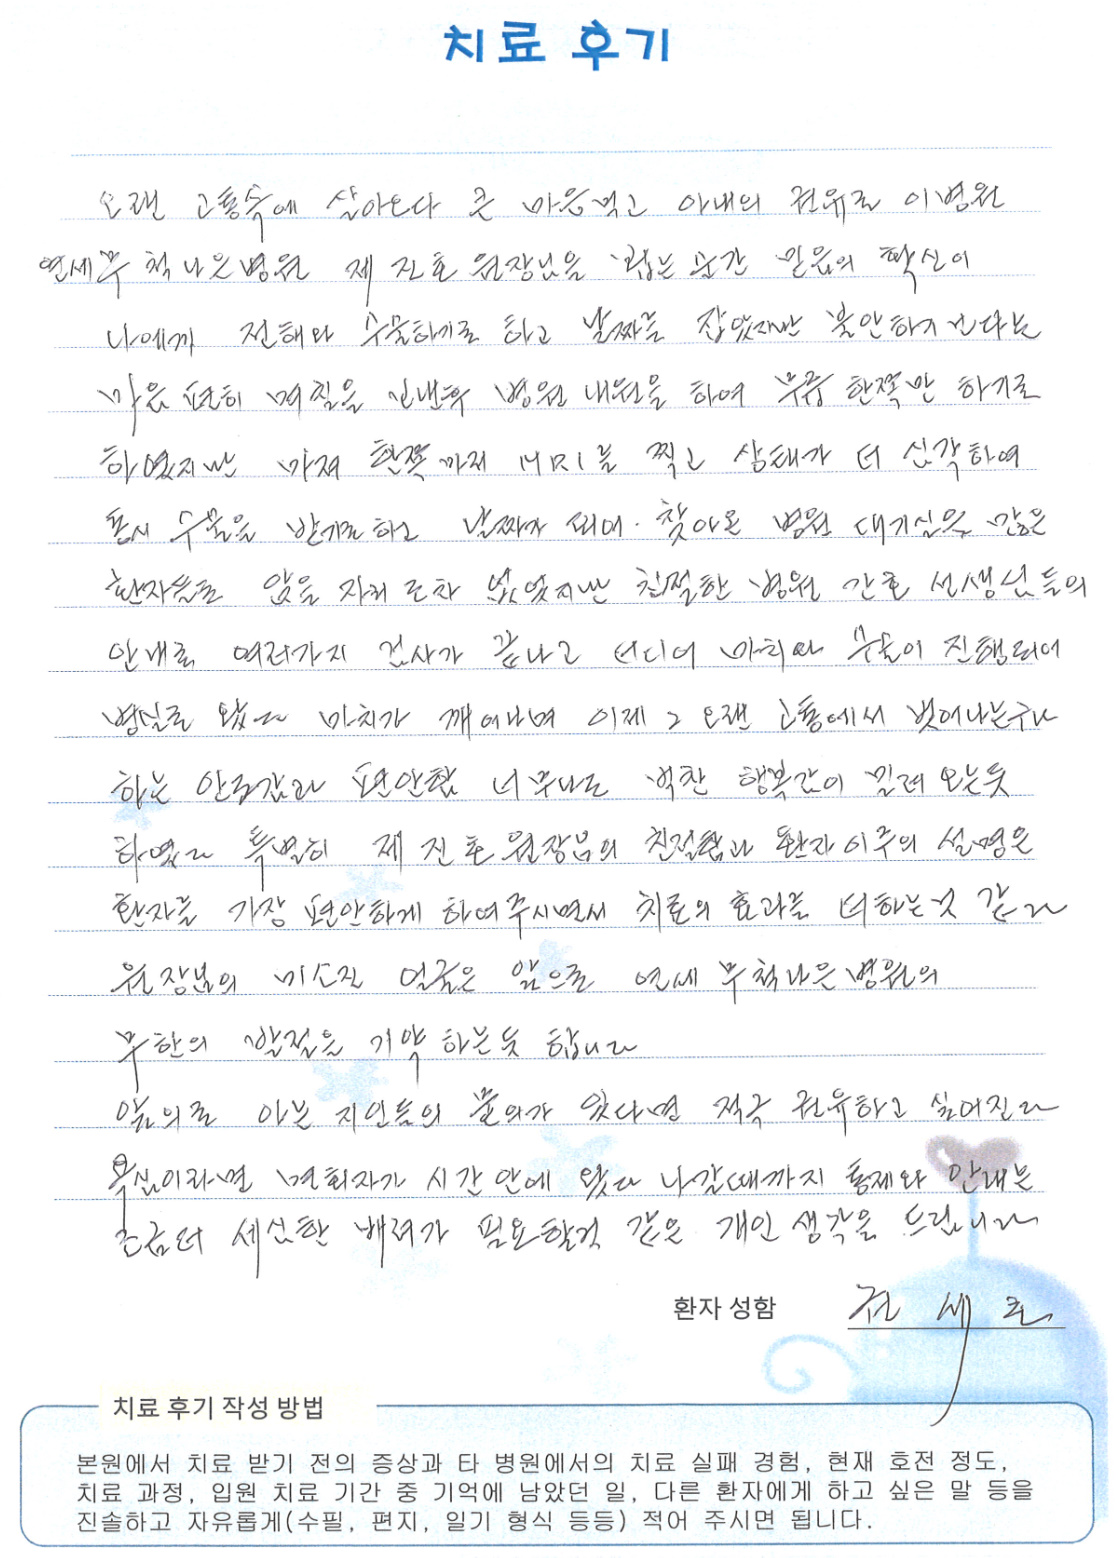 치료 후기
오랜 고통속에 살아오다 큰 마음먹고 아내의 권유로 이병원
연세무척나은병원 제진호 원장님을 뵙는 순간 믿음의 확신이
나에게 전해와 수술하기로 하고 날짜를 잡았지만 불안하지 않다는
마음 편히 며칠을 보낸후 병원 내원을 하여 무릎 한쪽만 하기로
하였지만 마저 한쪽까지 MRI를 찍고 상태가 더 심각하여
동시 수술을 받기로하고 날짜가 되어. 찾아온 병원 대기실은 많은
환자들로 앉을 자리 조차 없었지만 친절한 병원 간호 선생님들의
안내로 여러가지 검사가 끝나고 드디어 마취와 수술이 진행되어
병실로 왔고 마취가 깨어나며 이제 그 오랜 고통에서 벗어나는구나
하는 안도감과 편안함 너무나도 벅찬 행복감이 밀려 오는듯
하였고 특별히 제진호 원장님의 친절함과 환자 이주의 설명은
환자를 가장 편안하게 하여주시면서 치료의 효과를 더하는것 같고
원장님의 미소진 얼굴은 앞으로 연세무척나은병원의
무한의 발전을 기약 하는듯 합니다
앞으로 아는 지인들의 문의가 있다면 적극 권유하고 싶어진다
욕심이라면 면회자가 시간 안에 왔다 나갈때까지 통제와 안내는
조금더 세심한 배려가 필요할것 같은 개인 생각을 드립니다
환자 성함 권세조
치료 후기 작성 방법
본원에서 치료 받기 전의 증상과 타 병원에서의 치료 실패 경험, 현재 호전 정도,
치료 과정, 입원 치료 기간 중 기억에 남았던 일, 다른 환자에게 하고 싶은 말 등을
진솔하고 자유롭게(수필, 편지, 일기 형식 등등) 적어 주시면 됩니다.